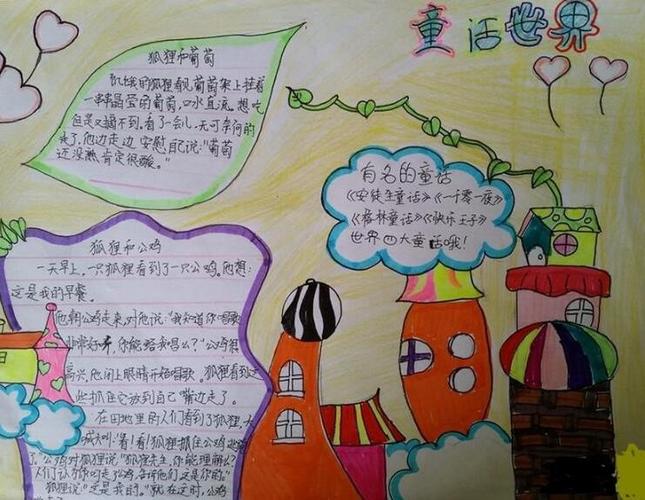 童话世界
狐狸和葡萄
饥饿的狐狸看见葡萄架上挂着
一串串晶莹的葡萄,口水直流。想吃
但是又摘不到。看了一会儿,无可奈何的
走了,他边走边安慰自己说:"葡萄
还没熟肯定很酸。"
有名的童话
《安徒生童话》《一千零一夜》
《格林童话》《快乐王子》
世界四大童话哦!
狐狸和公鸡
一天早上,一只狐狸看到了一只公鸡。他想:
这是我的早餐。
他朝公鸡走来,对他说:"我知道你唱歌
非常好听,你能给我唱么?"公鸡很
高兴,他闭上眼睛开始唱歌。狐狸看到这
些抓住它放到自己嘴边走了。
在田地里的人们看到了狐狸,大
喊大叫:"看!看!狐狸抓住公鸡逃
了。"公鸡对狐狸说:"狐狸先生,你能理解么?
人们认为你叼走公鸡,告诉他们这是你的"
狐狸说"这是我的。"就在这时,公鸡